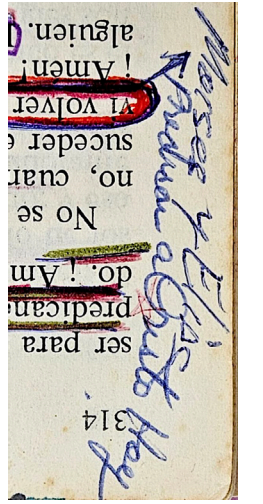 314
ser para
predican
do. ¡Am
No se
no, cuan
suceder e
vi volver
¡Amén!
alguien.
Moises y Elias
Predican a Cristo Hoy